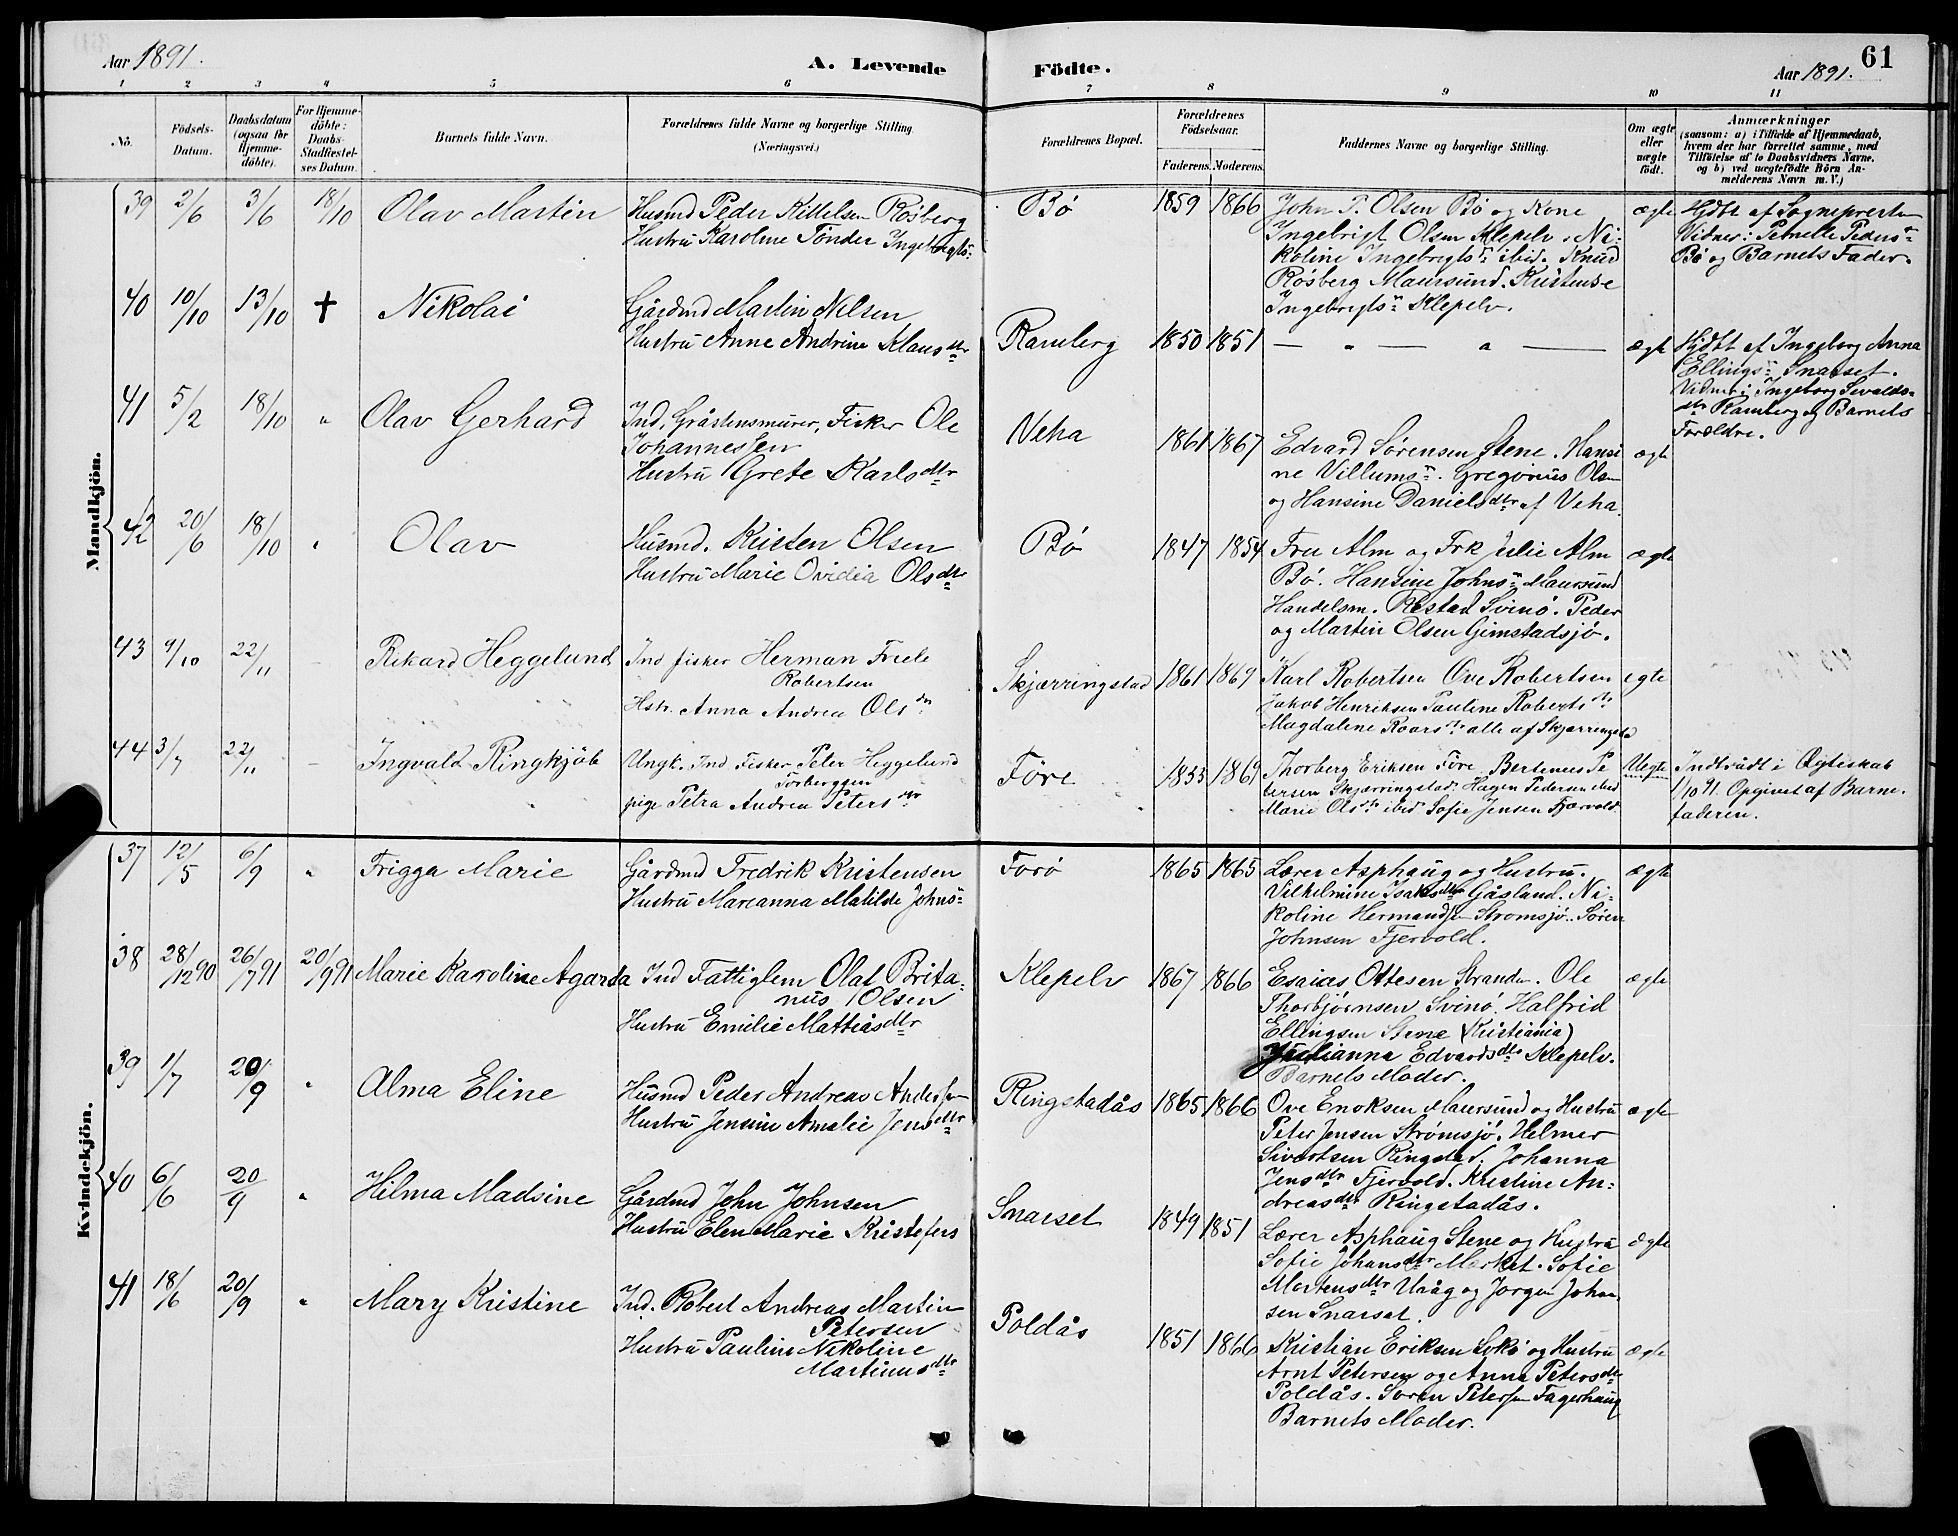 Aar 1891.
A. Levende Födte.
Aar 1891.
61
1 2 3 4 5 6 7 8 9 10 11
No.
Födsels-Datum.
Daabsdatum (ogsaa for Hjemmedöbte).
For Hjemmedöbte: Daabs-Stadfæstelses Datum.
Barnets fulde Navn.
Forældrenes fulde Navne og borgerlige Stilling. (Næringsvei.)
Forældrenes Bopæl.
Forældrenes Födselsaar.
Faderens. Moderens.
Faddernes Navne og borgerlige Stilling.
Om ægte eller uægte födt.
Anmærkninger
(saasom: a) i Tilfælde af Hjemmedaab, hvem der har forrettet samme, med Tilföielse af to Daabsvidners Navne, og b) ved uægtefödte Börn Anmelderens Navn m. V.)
Mandkjön.
39 2/6 3/6 18/10 Olav Martin
Husmd Peder Kittelsen Røsberg
Hustru Karoline Tønder Ingebrigts:
Bø 1859 1866
John P. Olsen Bø og Kone
Ingebrigt Olsen Klepelv. Ni-
koline Ingebrigtsn ibid. Knud
Røsberg Maursund. Kristense
Ingebrigtsn Klepelv.
ægte
Hjdbt af Sognepresten
Vidner: Petnelle Pedersn
Bø og Barnets Fader.
40 10/10 13/10 † Nikolai
Gårdmd Martin Nilsen
Hustru Anne Andrine Klausdtr
Ramberg 1850 1851 — „ — „ —
ægte
Hjdbt af Ingeborg Anna
Ellingsn Snarset.
Vidner: Ingeborg Sevalds-
dtr Ramberg og Barnets
Forældre.
41 5/2 18/10 „ Olav Gerhard
Ind, Gråstensmurer, Fisker Ole
Johannessen
Hustru Grete Karlsdtr
Veha 1861 1867
Edvard Sørensen Stene. Hansi
ne Villumsn. Gregorius Olsen
og Hansine Danielsdtr af Veha.
ægte
42 20/6 18/10 „ Olav
Husmd. Kristen Olsen
Hustru Marie Ovidia Olsdtr
Bø 1847 1854
Fru Alm og Frk Julie Alm
Bø. Hansine Johnsn Maursund
Handelsm. Restad Svinø. Peder
og Martin Olsen Gimstadsjø.
ægte
43 9/10 22/11 – Rikard Heggelund
Ind fisker Herman Friele
Robertsen
Hstr. Anna Andrea Olsdtr
Skjærringstad 1861 1869
Karl Robertsen Ove Robertsen
Jakob Henriksen Pauline Robertsdtr
Magdalene Roarsdtr alle af Skjærringstad
egte
44 3/7 22/11 – Ingvald Ringkjøb
Ungk. Ind Fisker Peter Heggelund
Torbergsen
pige Petra Andrea Petersdtr
Føre 1855 1869
Thorberg Eriksen Føre Bertenus Pe
tersen Skjærringstad Hagen Pedersen ibid
Marie Olsdtr ibid. Sofie Jensen Fjærvold.
Uegte
Indtrådt i Ægteskab
1/10 91. Opgivet af Barne-
faderen.
Kvindekjön.
37 12/5 6/9 „ Frigga Marie
Gårdmd Fredrik Kristensen
Hustru Mareanna Matilde Johns:
Forø 1865 1865
Lærer Asphaug og Hustru.
Vilhelmine Isaksdtr Gåsland. Ni-
koline Hermandsen Strømsjø. Søren
Johnsen Fjervold.
ægte
38 28/12 90 26/7 91 20/9 91 Marie Karoline Agarda
Ind Fattiglem Olat Brita-
nus Olsen
Hustru Emilie Mattiasdtr
Klepelv 1867 1866
Esaias Ottesen Stranden. Ole
Thorbjørnsen Svinø. Halfrid
Ellingsen Stene (Kristiania)
Julianna Edvardsdtr Klepelv.
Barnets Moder.
ægte
39 1/7 20/9 „ Alma Eline
Husmd Peder Andreas Andersen
Hustru Jensine Amalie Jensdtr
Ringstadås 1865 1866
Ove Enoksen Maursund og Hustru
Peter Jensen Strømsjø. Helmer
Sivertsen Ringstad. Johanna
Jensdtr Fjervold. Kristine An-
dreasdtr Ringstadås.
ægte
40 6/6 20/9 „ Hilma Madsine
Gårdmd John Johnsen
Hustru Elen Marie Kristofers
Snarset 1849 1851
Lærer Asphaug Stene og Hustru
Sofie Johansdtr Merket. Sofie
Mortensdtr Uråg og Jørgen Johan-
sen Snarset.
ægte
41 18/6 20/9 „ Mary Kristine
Ind. Robert Andreas Martin
Petersen
Hustru Pauline Nikoline
Martinusdtr
Poldås 1851 1866
Kristian Eriksen Sokø og Hustru
Arnt Petersen og Anna Petersdtr
Poldås. Søren Petersen Fagerhaug
Barnets Moder.
ægte